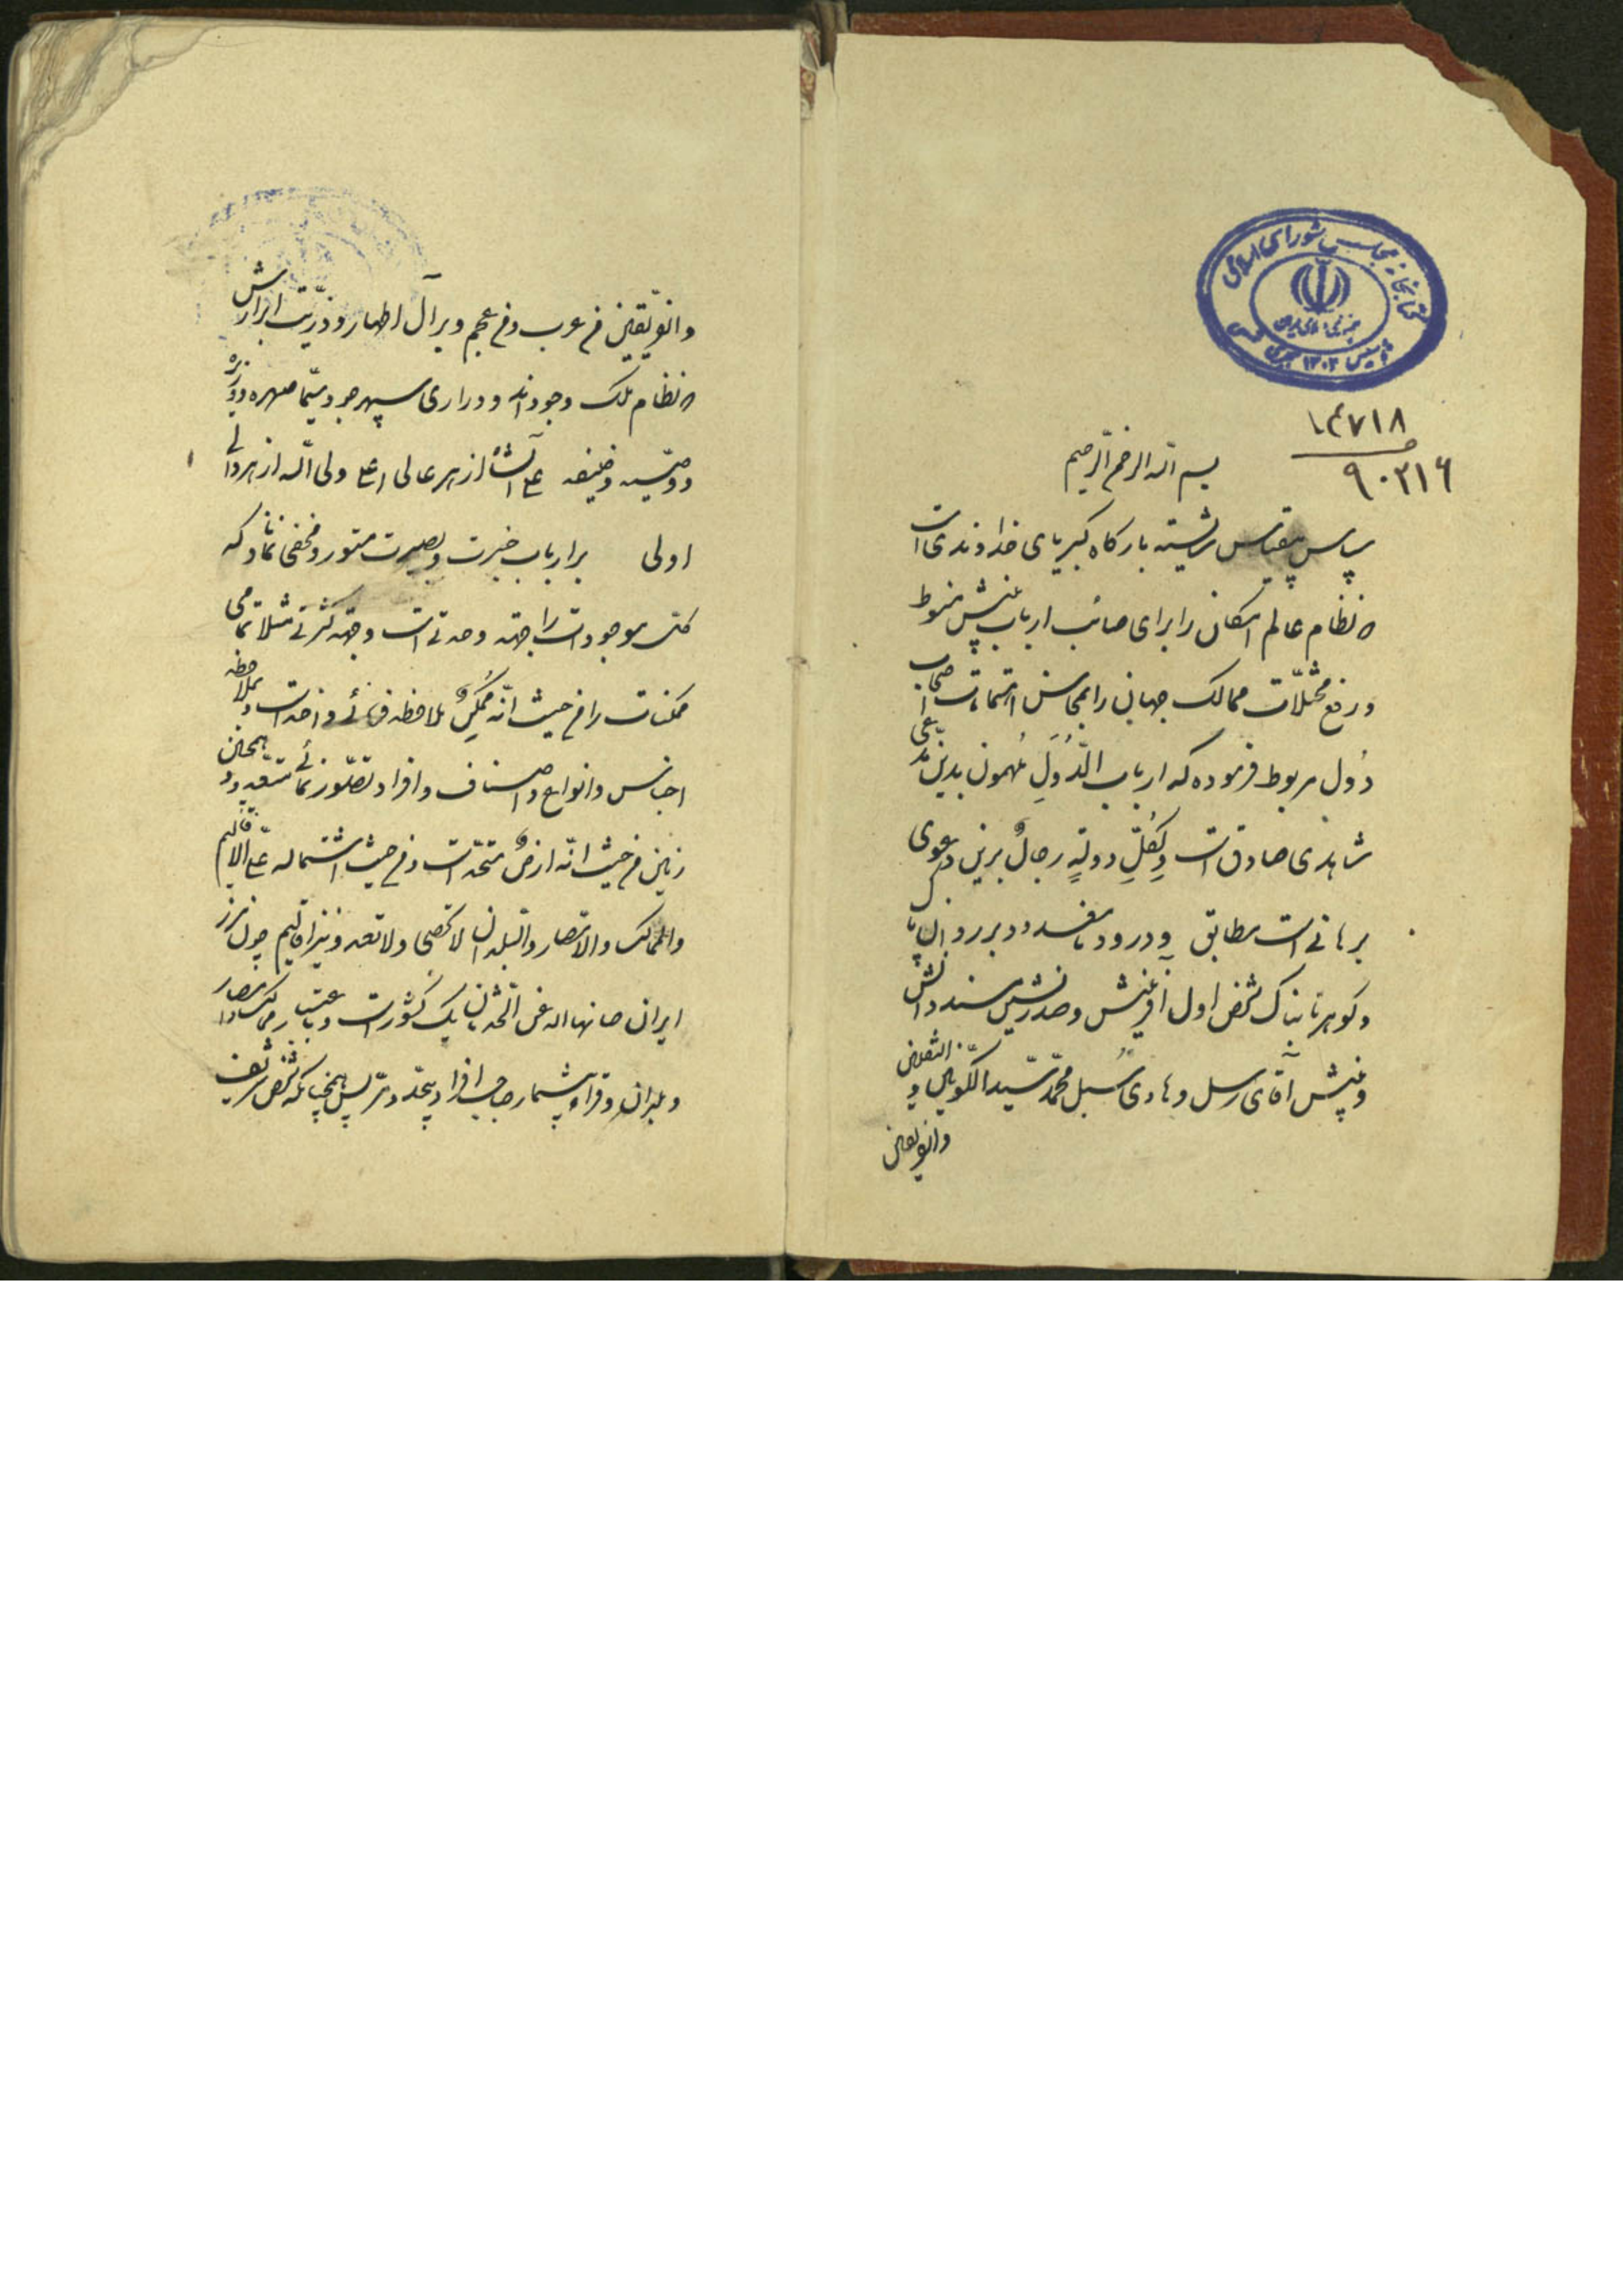 کتابخانه مجلس شورای اسلامی
۱۴۷۱۸
۹۰۳۱۶
بسم الله الرحمن الرحیم
سپاس بیقیاس شایسته بارگاه کبریای خداوندی است
که نظام عالم امکان را برای صائب ارباب بینش منوط
و رفع مختلات ممالک جهان را بمحاسن اهتمامات اصحاب
دُول مربوط فرموده که ارباب الدُوَلِ مُلهمون بدین مدّعی
شاهدی صادق است وَلِکُلِّ دولةٍ رجالٌ برین دعوی
برهانی است مطابق و درود نامعدود بر روان پاک
و گوهر تابناک شخص اول آفرینش و صدرنشین مسند دانش
و بینش آقای رسل و هادی سُبل محمّد سیّد الکونین و الثقلین
والفریقین
والفریقین من عرب و من عجم و بر آل اطهار و ذرّیت ابرارش
که نظام ملک وجودند و دراری سپهر جود سیّما صهره و وزیره
و وصیّه و خلیفه علی الشأن از هر عالی اعلی ولی الله از هر والی
اولی برارباب خبرت و بصیرت مستور و مخفی نماناد که
کلّ موجودات را جهة وحدتی است و جهة کثرتی مثلا تمامی
ممکنات را من حیث انّه مُمکِنٌ ملاحظه فرمائی واحد است و بملاحظه
اجناس و انواع و اصناف و افراد تصوّر نمائی متعدد و همچنین
زمین من حیث انّه ارضٌ متحد است و من حیث اشتماله علی الاقالیم
والممالک والامصار والبلدان لا تحصی ولا تعد و نیز اقلیم چون مرز
ایران صانها الله عن الحدثان یک کشور است و باعتبار ممالک و امصار
و بلدان و قراء بیشمار صاحب افراد بیحد و مر پس همچنانکه شخص شریف